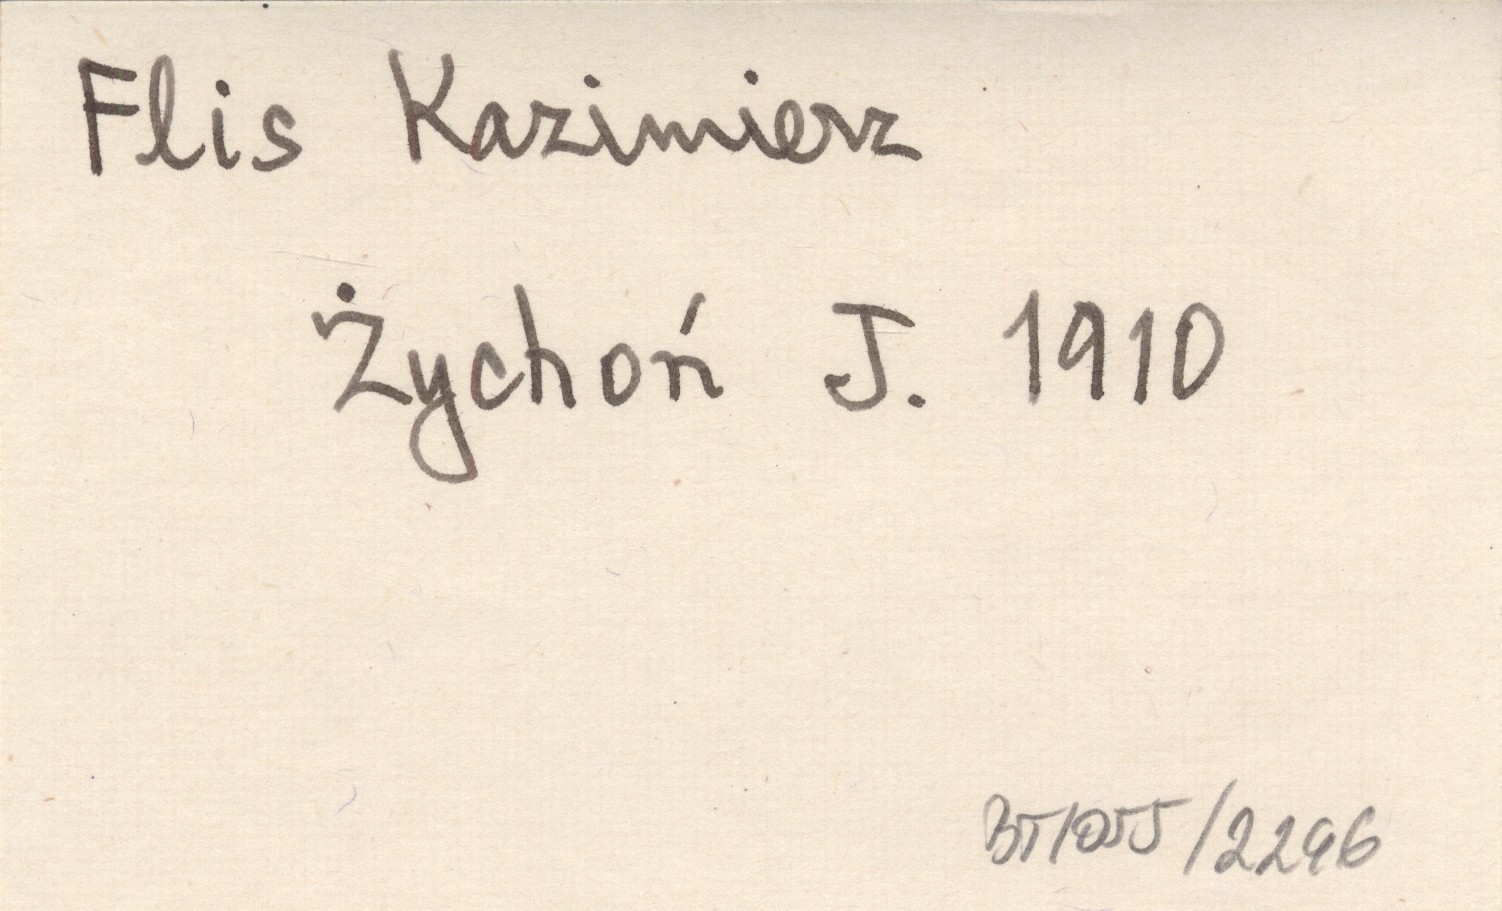 Flis Kazimierz
Żychoń J. 1910
BT/055/2296